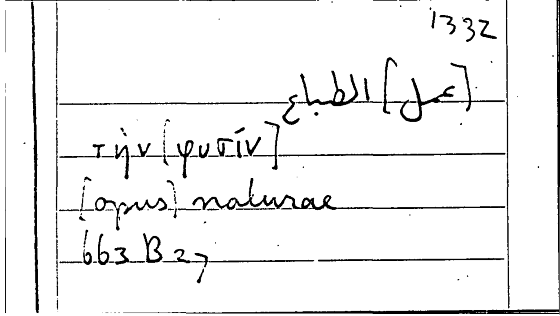 1332
[عمل] الطباع
τὴν [φυσίν]
[opus] naturae
663 B 27